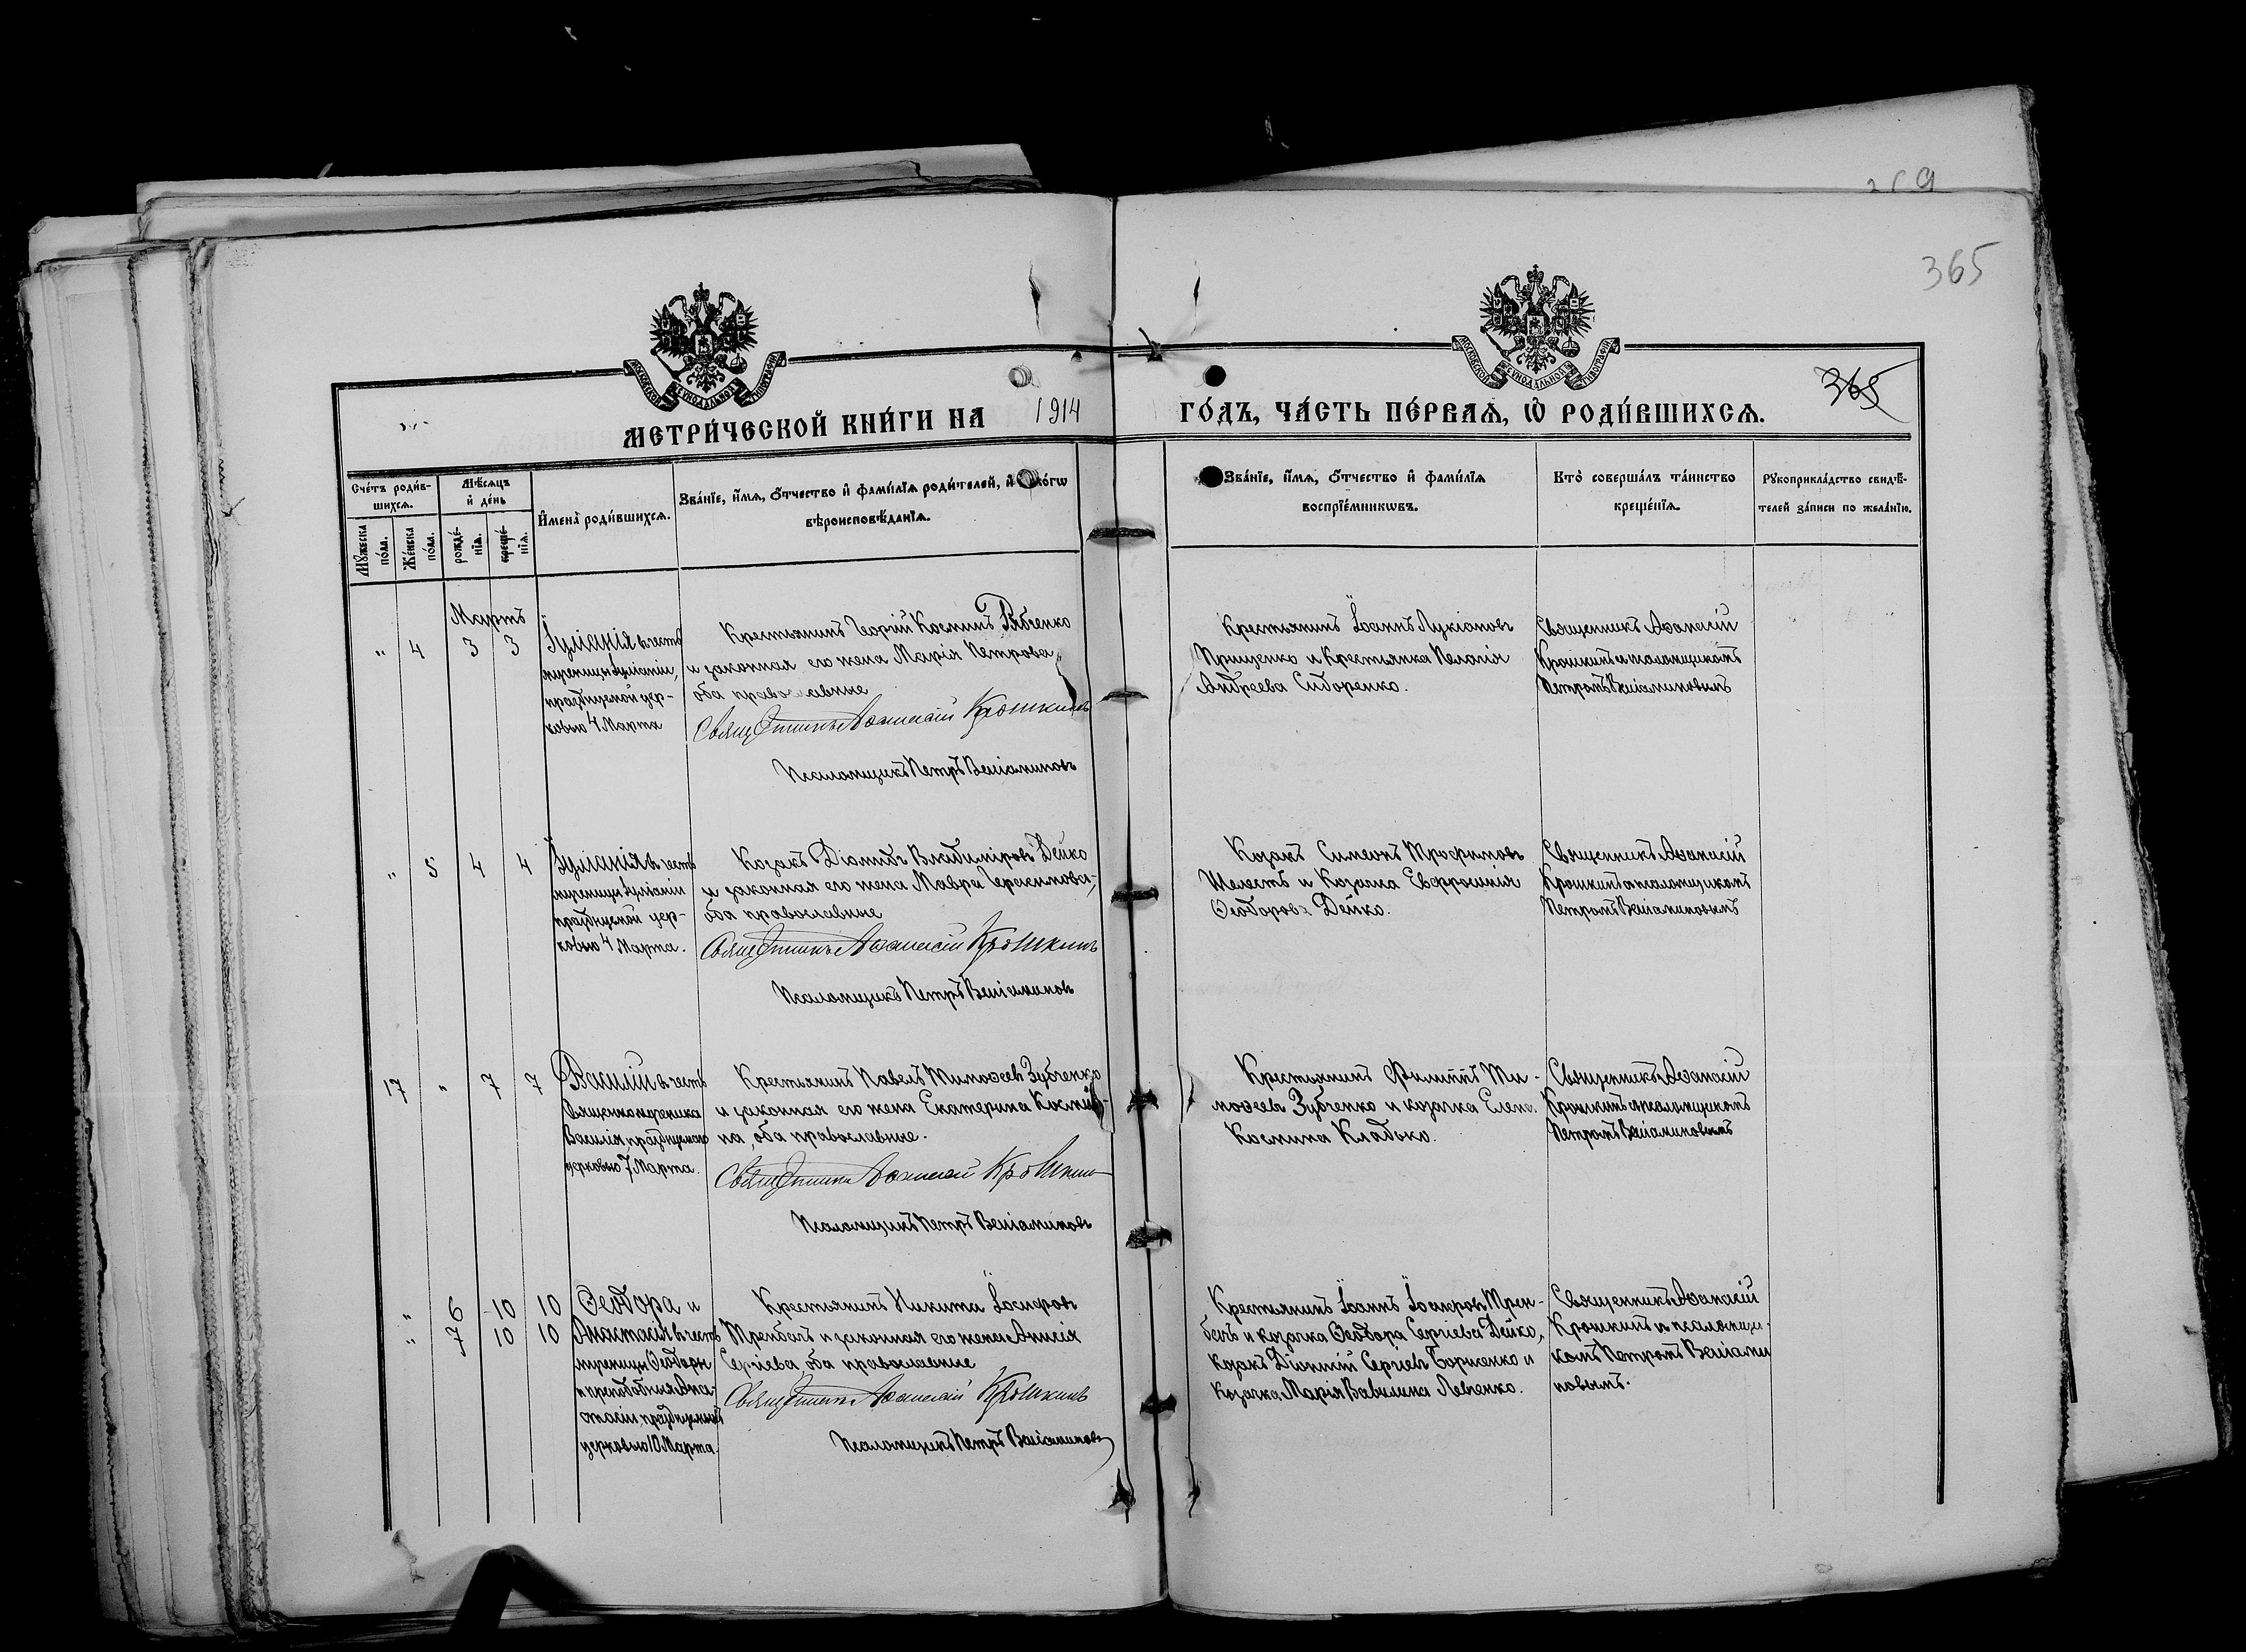 365
МОСКОВСКОЙ СѴНОДАЛЬНОЙ ТИПОГРАФІИ
МОСКОВСКОЙ СѴНОДАЛЬНОЙ ТИПОГРАФІИ
365
МЕТРИ́ЧЕСКОЙ КНИ́ГИ НА 1914
ГО́ДЪ, ЧА́СТЬ ПЕ́РВАѦ, Ѡ҆ РОДИ́ВШИХСѦ.
Сче́тъ роди́в-
шихсѧ.
Мѣ́сѧцъ
и҆ де́нь
Мꙋ́жеска
по́ла.
Же́нска
по́ла.
рожде́-
нїѧ.
креще́-
нїѧ.
И҆мена̀ роди́вшихсѧ.
Зва́нїе, и҆́мѧ, ѻ҆́тчество и҆ фами́лїѧ роди́телей, и҆
вѣроисповѣ́данїѧ.
Зва́нїе, и҆́мѧ, ѻ҆́тчество и҆ фами́лїѧ
воспрїе́мникѡвъ.
Кто̀ соверша́лъ та́инство
креще́нїѧ.
Рꙋкоприкла́дство свидѣ́-
телей за́писи по жела́нїю.
Мартъ
" 4 3 3
Іуліанія въ честь
мученицы Іуліаніи,
празднуемой цер-
ковью 4 Марта
Крестьянинъ Георгій Косминъ Рябченко
и законная его жена Марія Петрова,
оба православные
Священникъ Аѳанасій Крошкинъ
Псаломщикъ Петръ Веніаминовъ
Крестьянинъ Іоаннъ Лукіановъ
Прищенко и Крестьянка Пелагія
Андреева Сидоренко.
Священникъ Аѳанасій
Крошкинъ и псаломщикомъ
Петромъ Веніаминовымъ
" 5 4 4
Іуліанія въ честь
мученицы Іуліаніи
празднуемой цер-
ковью 4 Марта.
Козакъ Діомидъ Владиміровъ Дейко
и законная его жена Мавра Герасимова,
оба православные
Священникъ Аѳанасій Крошкинъ
Псаломщикъ Петръ Веніаминовъ
Козакъ Симеонъ Трофимовъ
Шелестъ и Козачка Евфросинія
Ѳеодорова Дейко.
Священникъ Аѳанасій
Крошкинъ и псаломщикомъ
Петромъ Веніаминовымъ
17 " 7 7
Василій въ честь
Священномученика
Василія празднуемаго
церковью 7 Марта.
Крестьянинъ Павелъ Тимоѳеевъ Зубченко
и законная его жена Екатерина Косми-
на, оба православные.
Священникъ Аѳанасій Крошкинъ
Псаломщикъ Петръ Веніаминовъ
Крестьянинъ Филиппъ Ти-
моѳеевъ Зубченко и козачка Елена
Космина Кладько.
Священникъ Аѳанасій
Крошкинъ и псаломщикомъ
Петромъ Веніаминовымъ
" 6 10 10
" 7 10 10
Ѳеодора и
Анастасія въ честь
мученицы Ѳеодоры
и преподобныя Ана-
стасіи, празднуемыхъ
церковью 10 Марта.
Крестьянинъ Никита Іосифовъ
Трембачъ и законная его жена Анисія
Сергіева оба православные
Священникъ Аѳанасій Крошкинъ
Псаломщикъ Петръ Веніаминовъ
Крестьянинъ Іоаннъ Іосифовъ Трем-
бачъ и козачка Ѳеодора Сергіева Дейко,
козакъ Діонисій Сергіевъ Борисенко и
козачка Марія Вавилина Левченко.
Священникъ Аѳанасій
Крошкинъ и псаломщи-
комъ Петромъ Веніами
новымъ.